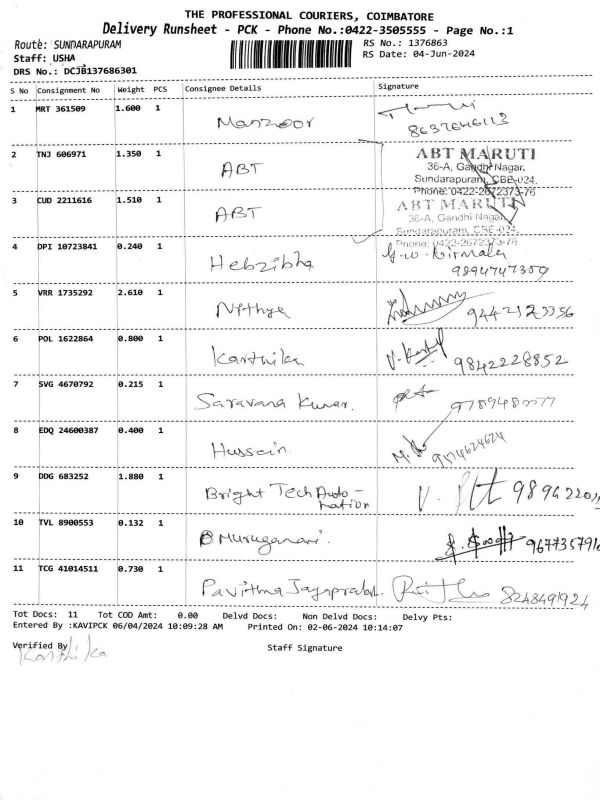 THE PROFESSIONAL COURIERS, COIMBATORE
Delivery Runsheet - PCK - Phone No.:0422-3505555 - Page No.:1
Route: SUNDARAPURAM
RS No.: 1376863
Staff: USHA
RS Date: 04-Jun-2024
DRS No.: DCJB137686301
S No Consignment No Weight PCS Consignee Details Signature
1 MRT 361509 1.600 1 Manzoor
8637646113
2 TNJ 606971 1.350 1 ABT
ABT MARUTI
36-A, Gandhi Nagar,
Sundarapuram, CBE-024.
Phone: 0422-2672373-76
3 CUD 2211616 1.510 1 ABT
ABT MARUTI
36-A, Gandhi Nagar,
Sundarapuram, CBE-024.
Phone: 0422-2672373-76
4 DPI 10723841 0.240 1 Hebzibha
9894747309
5 VRR 1735292 2.610 1 Nithya
6 POL 1622864 0.800 1 Karthika 9842228852
7 SVG 4670792 0.215 1 Saravana Kumar.
8 EDQ 24600387 0.400 1 Hussain. 
9 DDG 683252 1.880 1 Bright Tech Auto-
mation
10 TVL 8900553 0.132 1
11 TCG 41014511 0.730 1 8248491924
Tot Docs: 11 Tot COD Amt: 0.00 Delvd Docs: Non Delvd Docs: Delvy Pts:
Entered By :KAVIPCK 06/04/2024 10:09:28 AM Printed On: 02-06-2024 10:14:07
Verified By
Staff Signature
Karthika